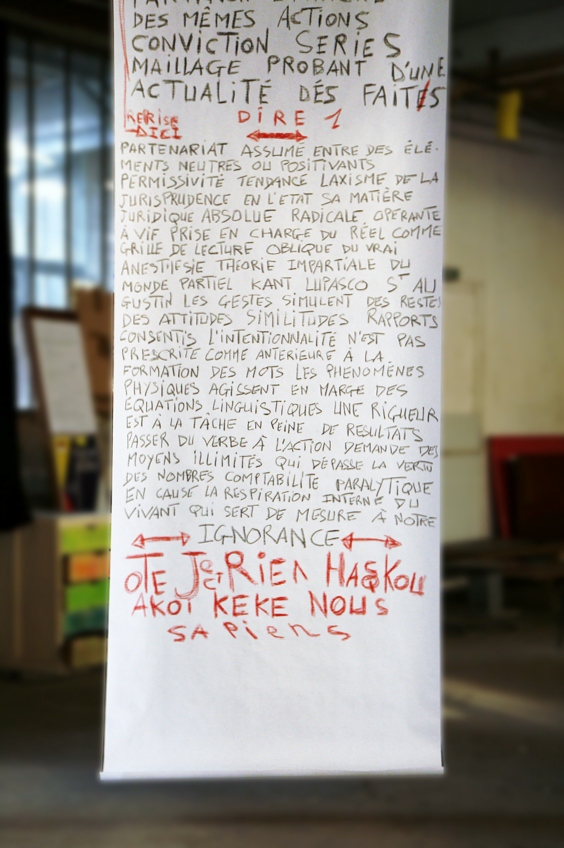 DES MÊMES ACTIONS
CONVICTION SERIES
MAILLAGE PROBANT D'UNE
ACTUALITÉ DÉS FAITES
REPRISE DIRE 1
D'ICI
PARTENARIAT ASSUMÉ ENTRE DES ÉLÉ-
MENTS NEUTRES OU POSITIVANTS
PERMISSIVITÉ TENDANCE LAXISME DE LA
JURISPRUDENCE EN L'ÉTAT SA MATIÈRE
JURIDIQUE ABSOLUE RADICALE OPÉRANTE
À VIF PRISE EN CHARGE DU RÉEL COMME
GRILLE DE LECTURE OBLIQUE DU VRAI
ANESTHESIE THÉORIE IMPARTIALE DU
MONDE PARTIEL KANT LUPASCO ST AU
GUSTIN LES GESTES SIMULENT DES RESTES
DES ATTITUDES SIMILITUDES RAPPORTS
CONSENTIS L'INTENTIONNALITÉ N'EST PAS
PRESCRITE COMME ANTERIEURE À LA
FORMATION DES MOTS LES PHENOMÈNES
PHYSIQUES AGISSENT EN MARGE DES
EQUATIONS LINGUISTIQUES UNE RIGUEUR
EST À LA TÂCHE EN PEINE DE RESULTATS
PASSER DU VERBE À L'ACTION DEMANDE DES
MOYENS ILLIMITÉS QUI DÉPASSE LA VERTU
DES NOMBRES COMPTABILITÉ PARALYTIQUE
EN CAUSE LA RESPIRATION INTERNE DU
VIVANT QUI SERT DE MESURE À NOTRE
IGNORANCE
OTE RIEN
AKOI KEKE NOUS
SAPIENS